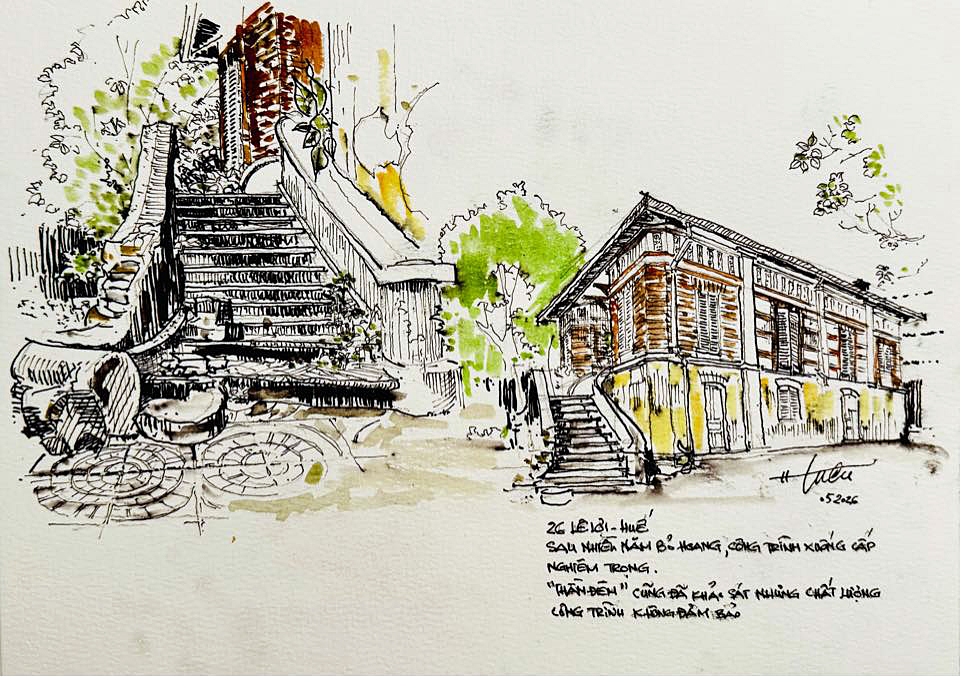 .05.2026
26 LÊ LỢI - HUẾ
SAU NHIỀU NĂM BỎ HOANG, CÔNG TRÌNH XUỐNG CẤP
NGHIÊM TRỌNG.
"THẦN ĐÈN" CŨNG ĐÃ KHẢO SÁT NHƯNG CHẤT LƯỢNG
CÔNG TRÌNH KHÔNG ĐẢM BẢO